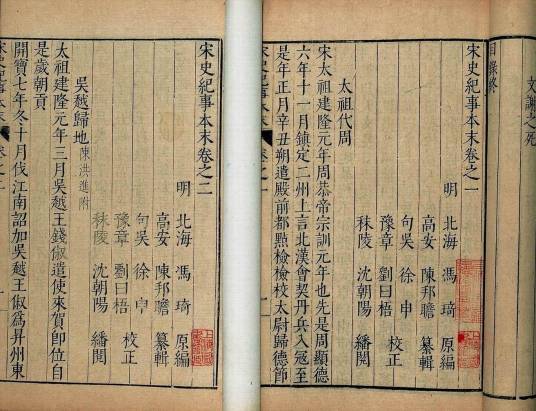 文謝之死
目錄終
宋史紀事本末卷之一
明 北海 馮琦 原編
高安 陳邦瞻 纂輯
句吳 徐申
豫章 劉曰梧 校正
秣陵 沈朝陽 繙閱
太祖代周
宋太祖建隆元年周恭帝宗訓元年也先是周顯德
六年十一月鎮定二州上言北漢會契丹兵入寇至
是年正月辛丑朔遣殿前都點檢檢校太尉歸德節
宋史紀事本末卷之二
明 北海 馮琦 原編
高安 陳邦瞻 纂輯
句吳 徐申
豫章 劉曰梧 校正
秣陵 沈朝陽 繙閱
吳越歸地 陳洪進附
太祖建隆元年三月吳越王錢俶遣使來賀即位自
是歲朝貢
開寶七年冬十月伐江南詔加吳越王俶為昇州東